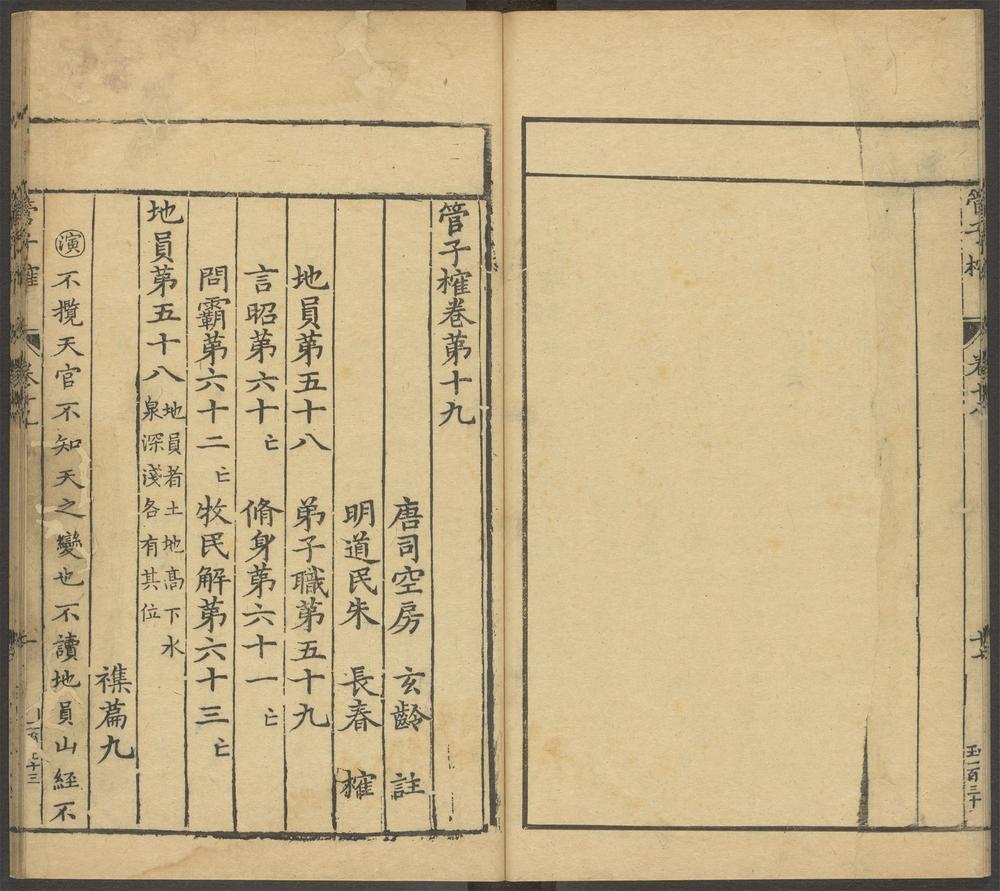 管子榷
卷十八
管子榷卷第十九
唐司空房 玄齡 註
明道民朱 長春 榷
地員第五十八 弟子職第五十九
言昭第六十亡 脩身第六十一亡
問霸第六十二亡 牧民解第六十三亡
地員第五十八 地員者土地高下水
泉深淺各有其位
襍篇九
演 不攬天官不知天之變也不讀地員山經不
管子榷